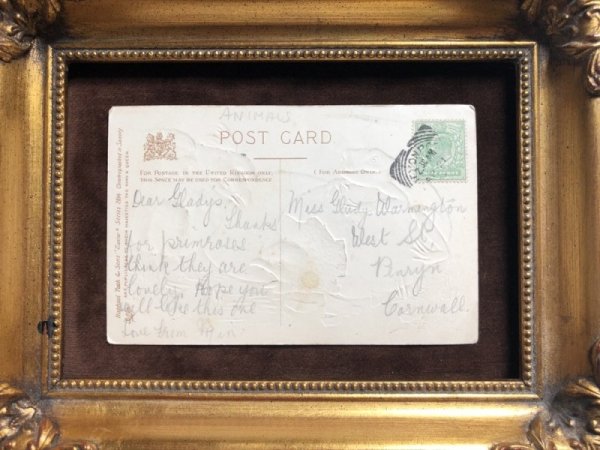 ANIMALS
POST CARD
FOR POSTAGE IN THE UNITED KINGDOM ONLY,
THIS SPACE MAY BE USED FOR CORRESPONDENCE
(FOR ADDRESS ONLY.)
Dear Gladys.
Thanks
for primroses
think they are
lovely. Hope you
will like this one
Love from
Miss Gladys Warmington
West St.
Penryn
Cornwall.
Raphael Tuck & Sons' "Easter" Series